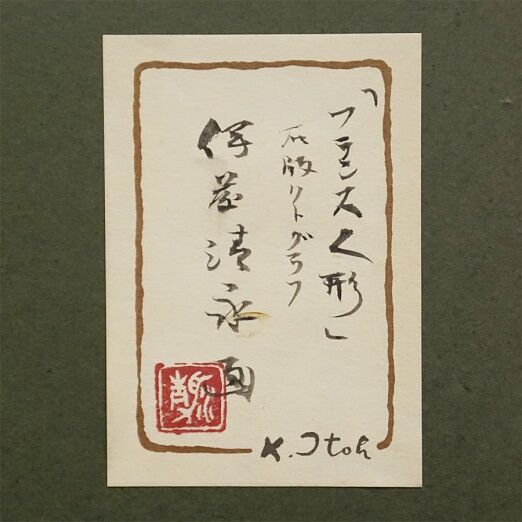 「フランス人形」
石版リトグラフ
伊藤清永画
K. Itoh